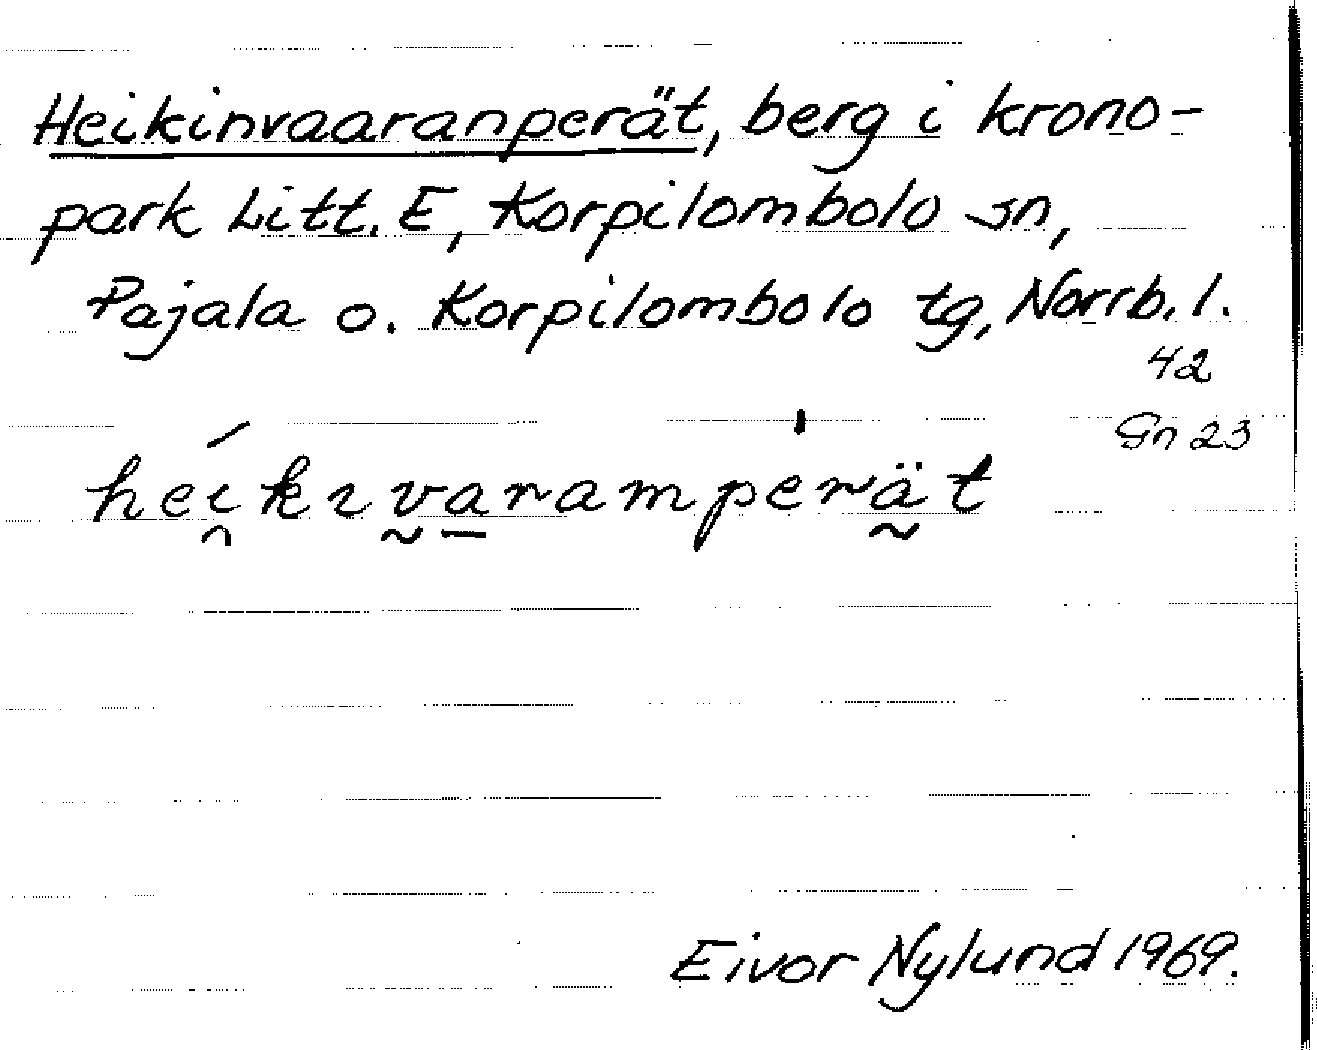 Heikinvaaranperät, berg i krono-
park Litt. E, Korpilombolo sn,
Pajala o. Korpilombolo tg, Norrb. l.
42
Gn 23
hei̯kivaramperät
Eivor Nylund 1969.